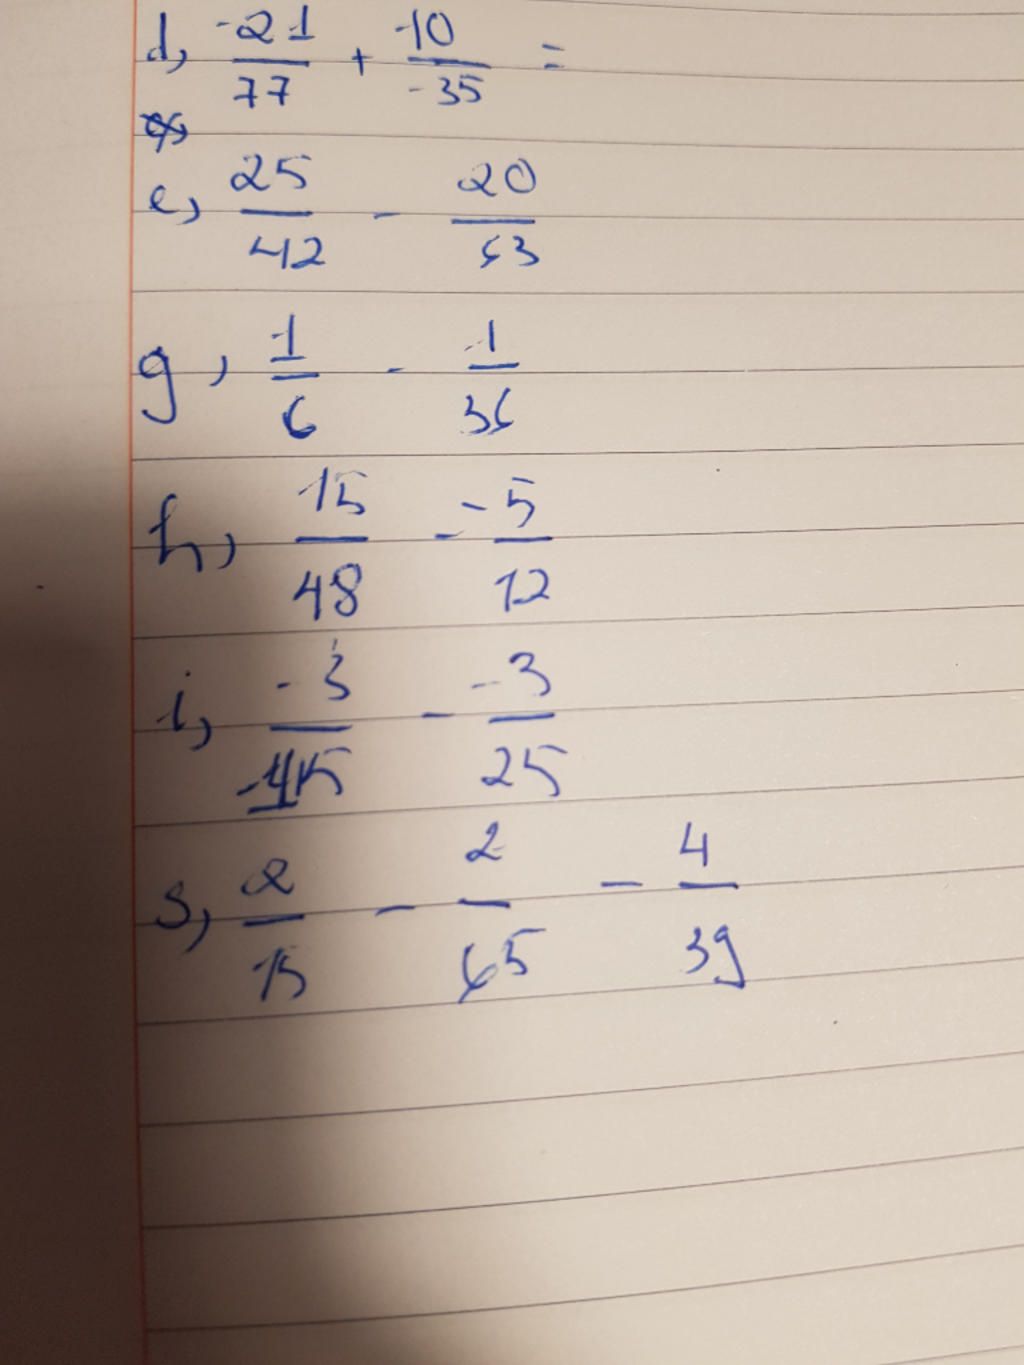 d, -21/77 + -10/-35 =
e, 25/42 - 20/63
g, 1/6 - 1/36
h, 15/48 - -5/12
i, -3/-45 - -3/25
s, 2/15 - 2/65 - 4/39